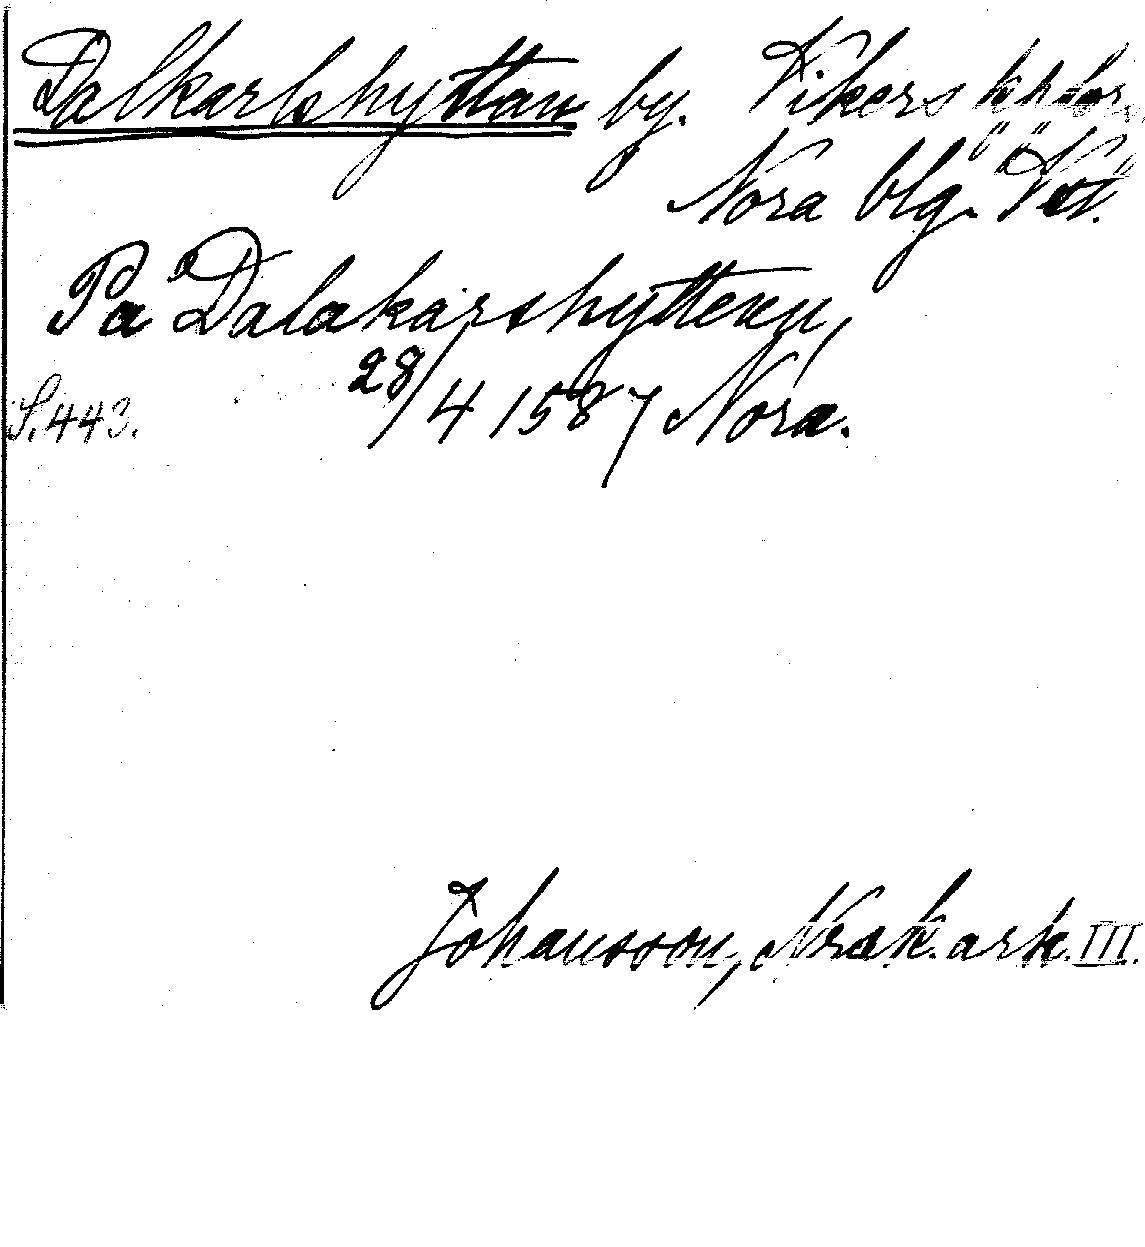 Dalkarlshyttan by. Vikers
Nora blg. Vstl.
På Dalakarshyttenn,
28/4 1587 Nora.
S. 443.
Johansson, Norask. ark. III.